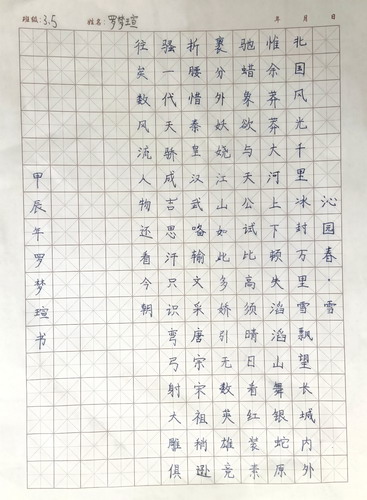 班级: 3.5 姓名: 罗梦瑄 年 月 日
沁园春·雪
北国风光千里冰封万里雪飘望长城内外
惟余莽莽大河上下顿失滔滔山舞银蛇原
驰蜡象欲与天公试比高须晴日看红装素
裹分外妖娆江山如此多娇引无数英雄竞
折腰惜秦皇汉武咯输文采唐宋宋祖稍逊
骚一代天骄成吉思汗只识弯弓射大雕俱
往矣数风流人物还看今朝
甲辰年罗梦瑄书